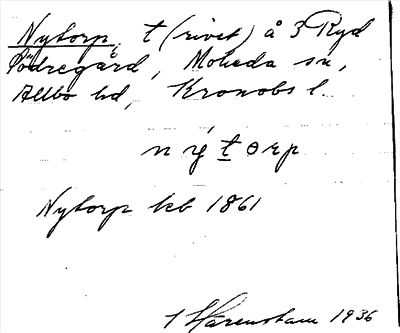 Nytorp, t (rivet) å 3 Ryd
Södregård, Moheda sn,
Allbo hd, Kronobs l.
nýtorp
Nytorp kb 1861
Harenstam 1936